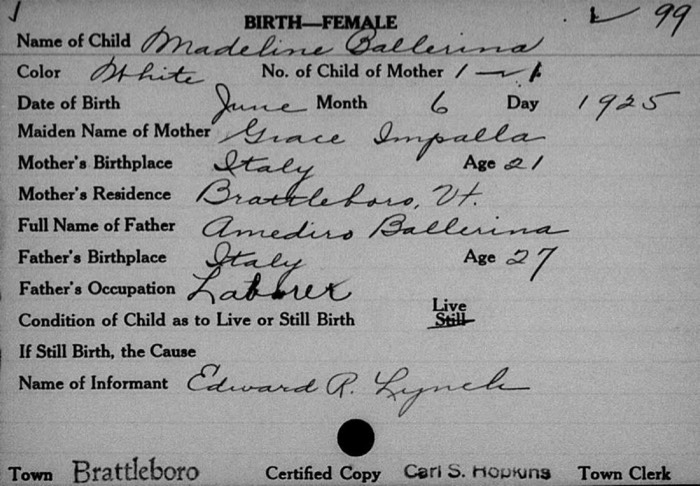 BIRTH—FEMALE 99
Name of Child Madeline Ballerina
Color White No. of Child of Mother 1 — 1
Date of Birth June Month 6 Day 1925
Maiden Name of Mother Grace Impalla
Mother's Birthplace Italy Age 21
Mother's Residence Brattleboro, Vt.
Full Name of Father Amediro Ballerina
Father's Birthplace Italy Age 27
Father's Occupation Laborer
Condition of Child as to Live or Still Birth Live Still
If Still Birth, the Cause
Name of Informant Edward R. Lynch
Town Brattleboro Certified Copy Carl S. Hopkins Town Clerk